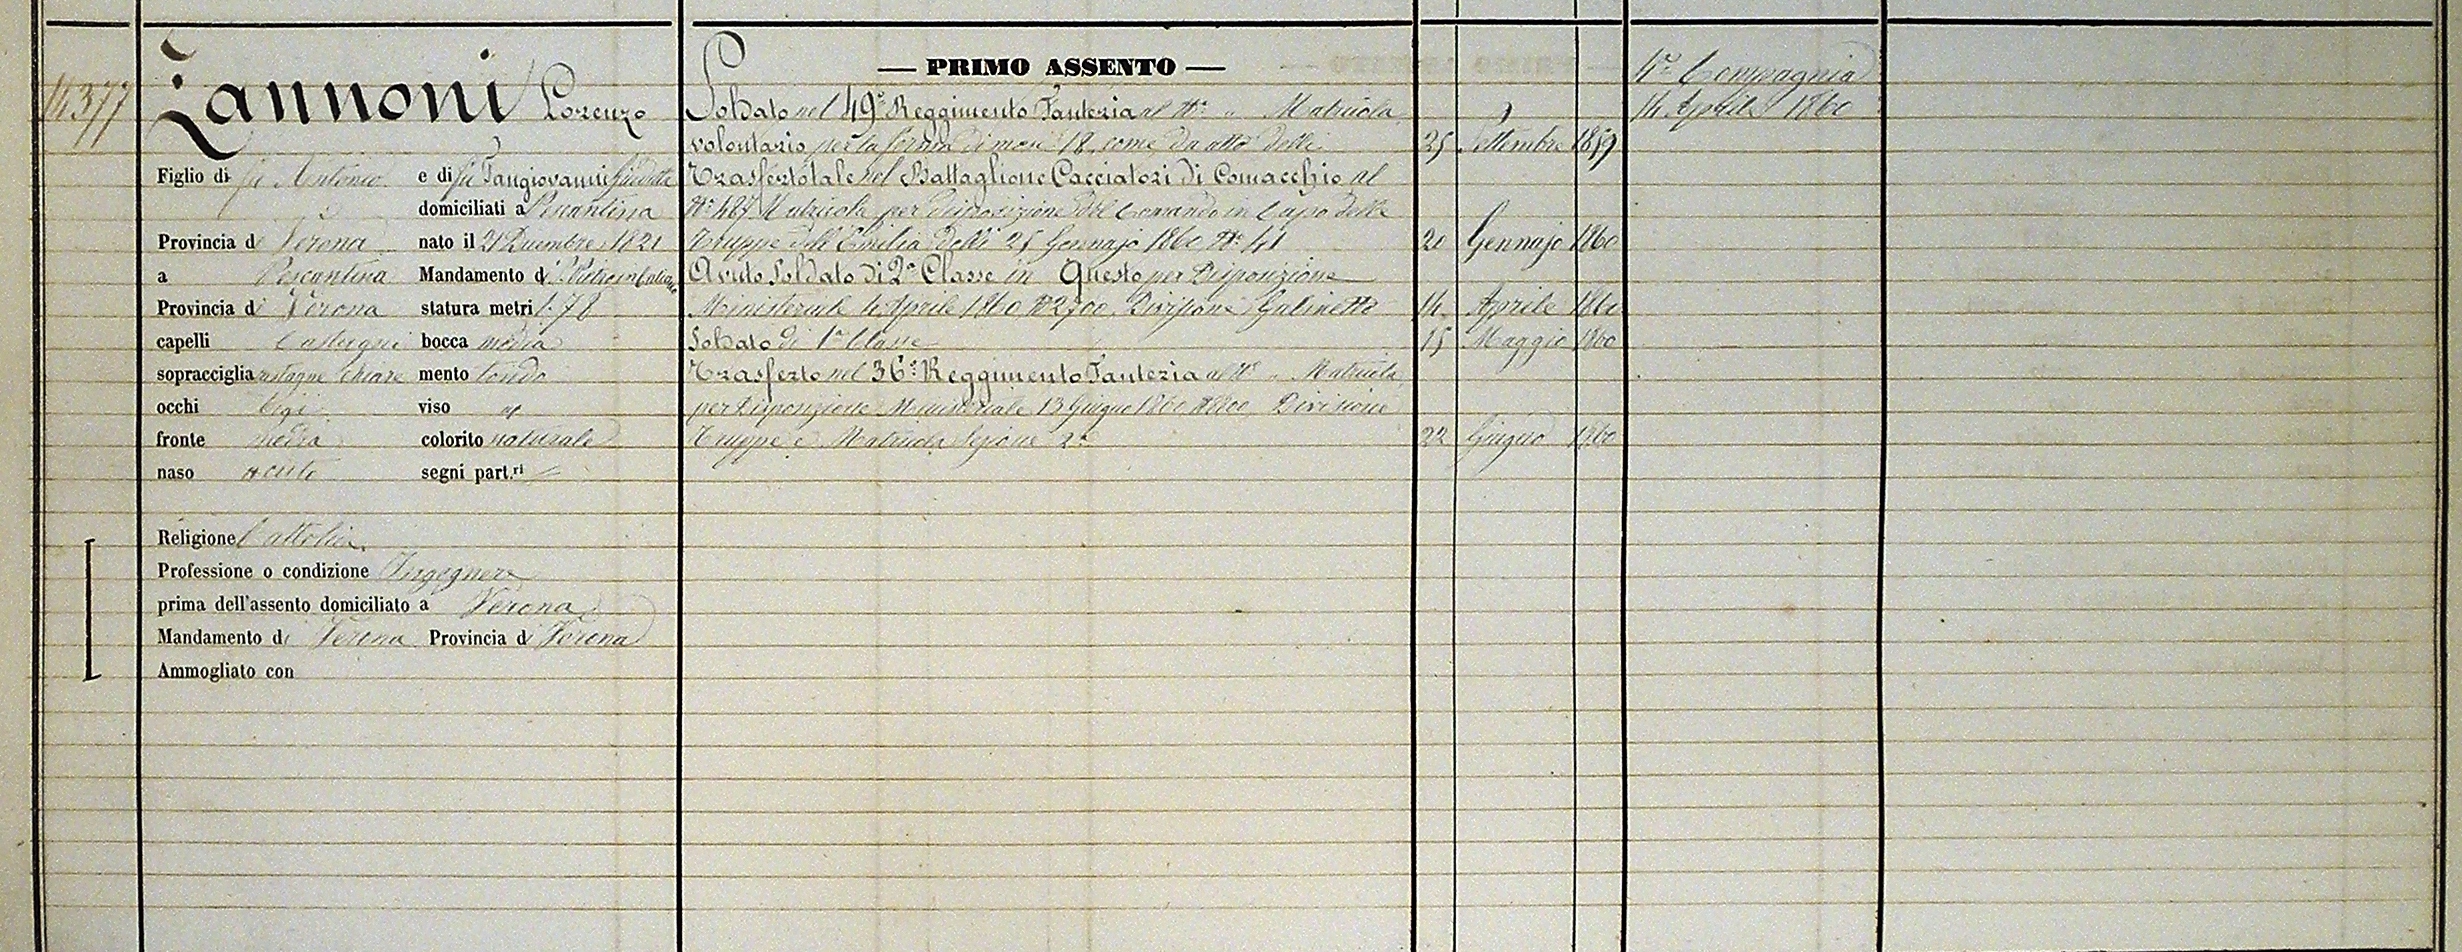 14377
Zannoni Lorenzo
Figlio di fu Antonio e di fu Sangiovanni Giuditta
domiciliati a Pescantina
Provincia di Verona nato il 21 Dicembre 1821
a Pescantina Mandamento di S. Pietro
Provincia di Verona statura metri 1.78
capelli Castagni bocca media
sopracciglia castagne chiare mento tondo
occhi bigi viso
fronte media colorito naturale
naso segni part.ri
Religione Cattolica
Professione o condizione Ingegnere
prima dell'assento domiciliato a Verona
Mandamento di Verona Provincia di Verona
Ammogliato con
— PRIMO ASSENTO —
Soldato nel 49° Reggimento Fanteria al N° " Matricola
volontario per la ferma di mesi 18, come da atto delli 25 Settembre 1859
Trasferto tale nel Battaglione Cacciatori di Comacchio al
N° 487 Matricola per disposizione del Comando in Capo delle
Truppe dell'Emilia delli 25 Gennajo 1860 N° 41 20 Gennajo 1860
Avuto Soldato di 2a Classe in Questo per Disposizione
Ministeriale 4 Aprile 1860 N° 2700 Divisione Gabinetto 14 Aprile 1860
Soldato di 1a Classe 15 Maggio 1860
Trasferto nel 36° Reggimento Fanteria al N° " Matricola
per Disposizione Ministeriale 13 Giugno 1860 Divisione
Truppe e Matricola Sezione 2a 22 Giugno 1860
4a Compagnia
14 Aprile 1860